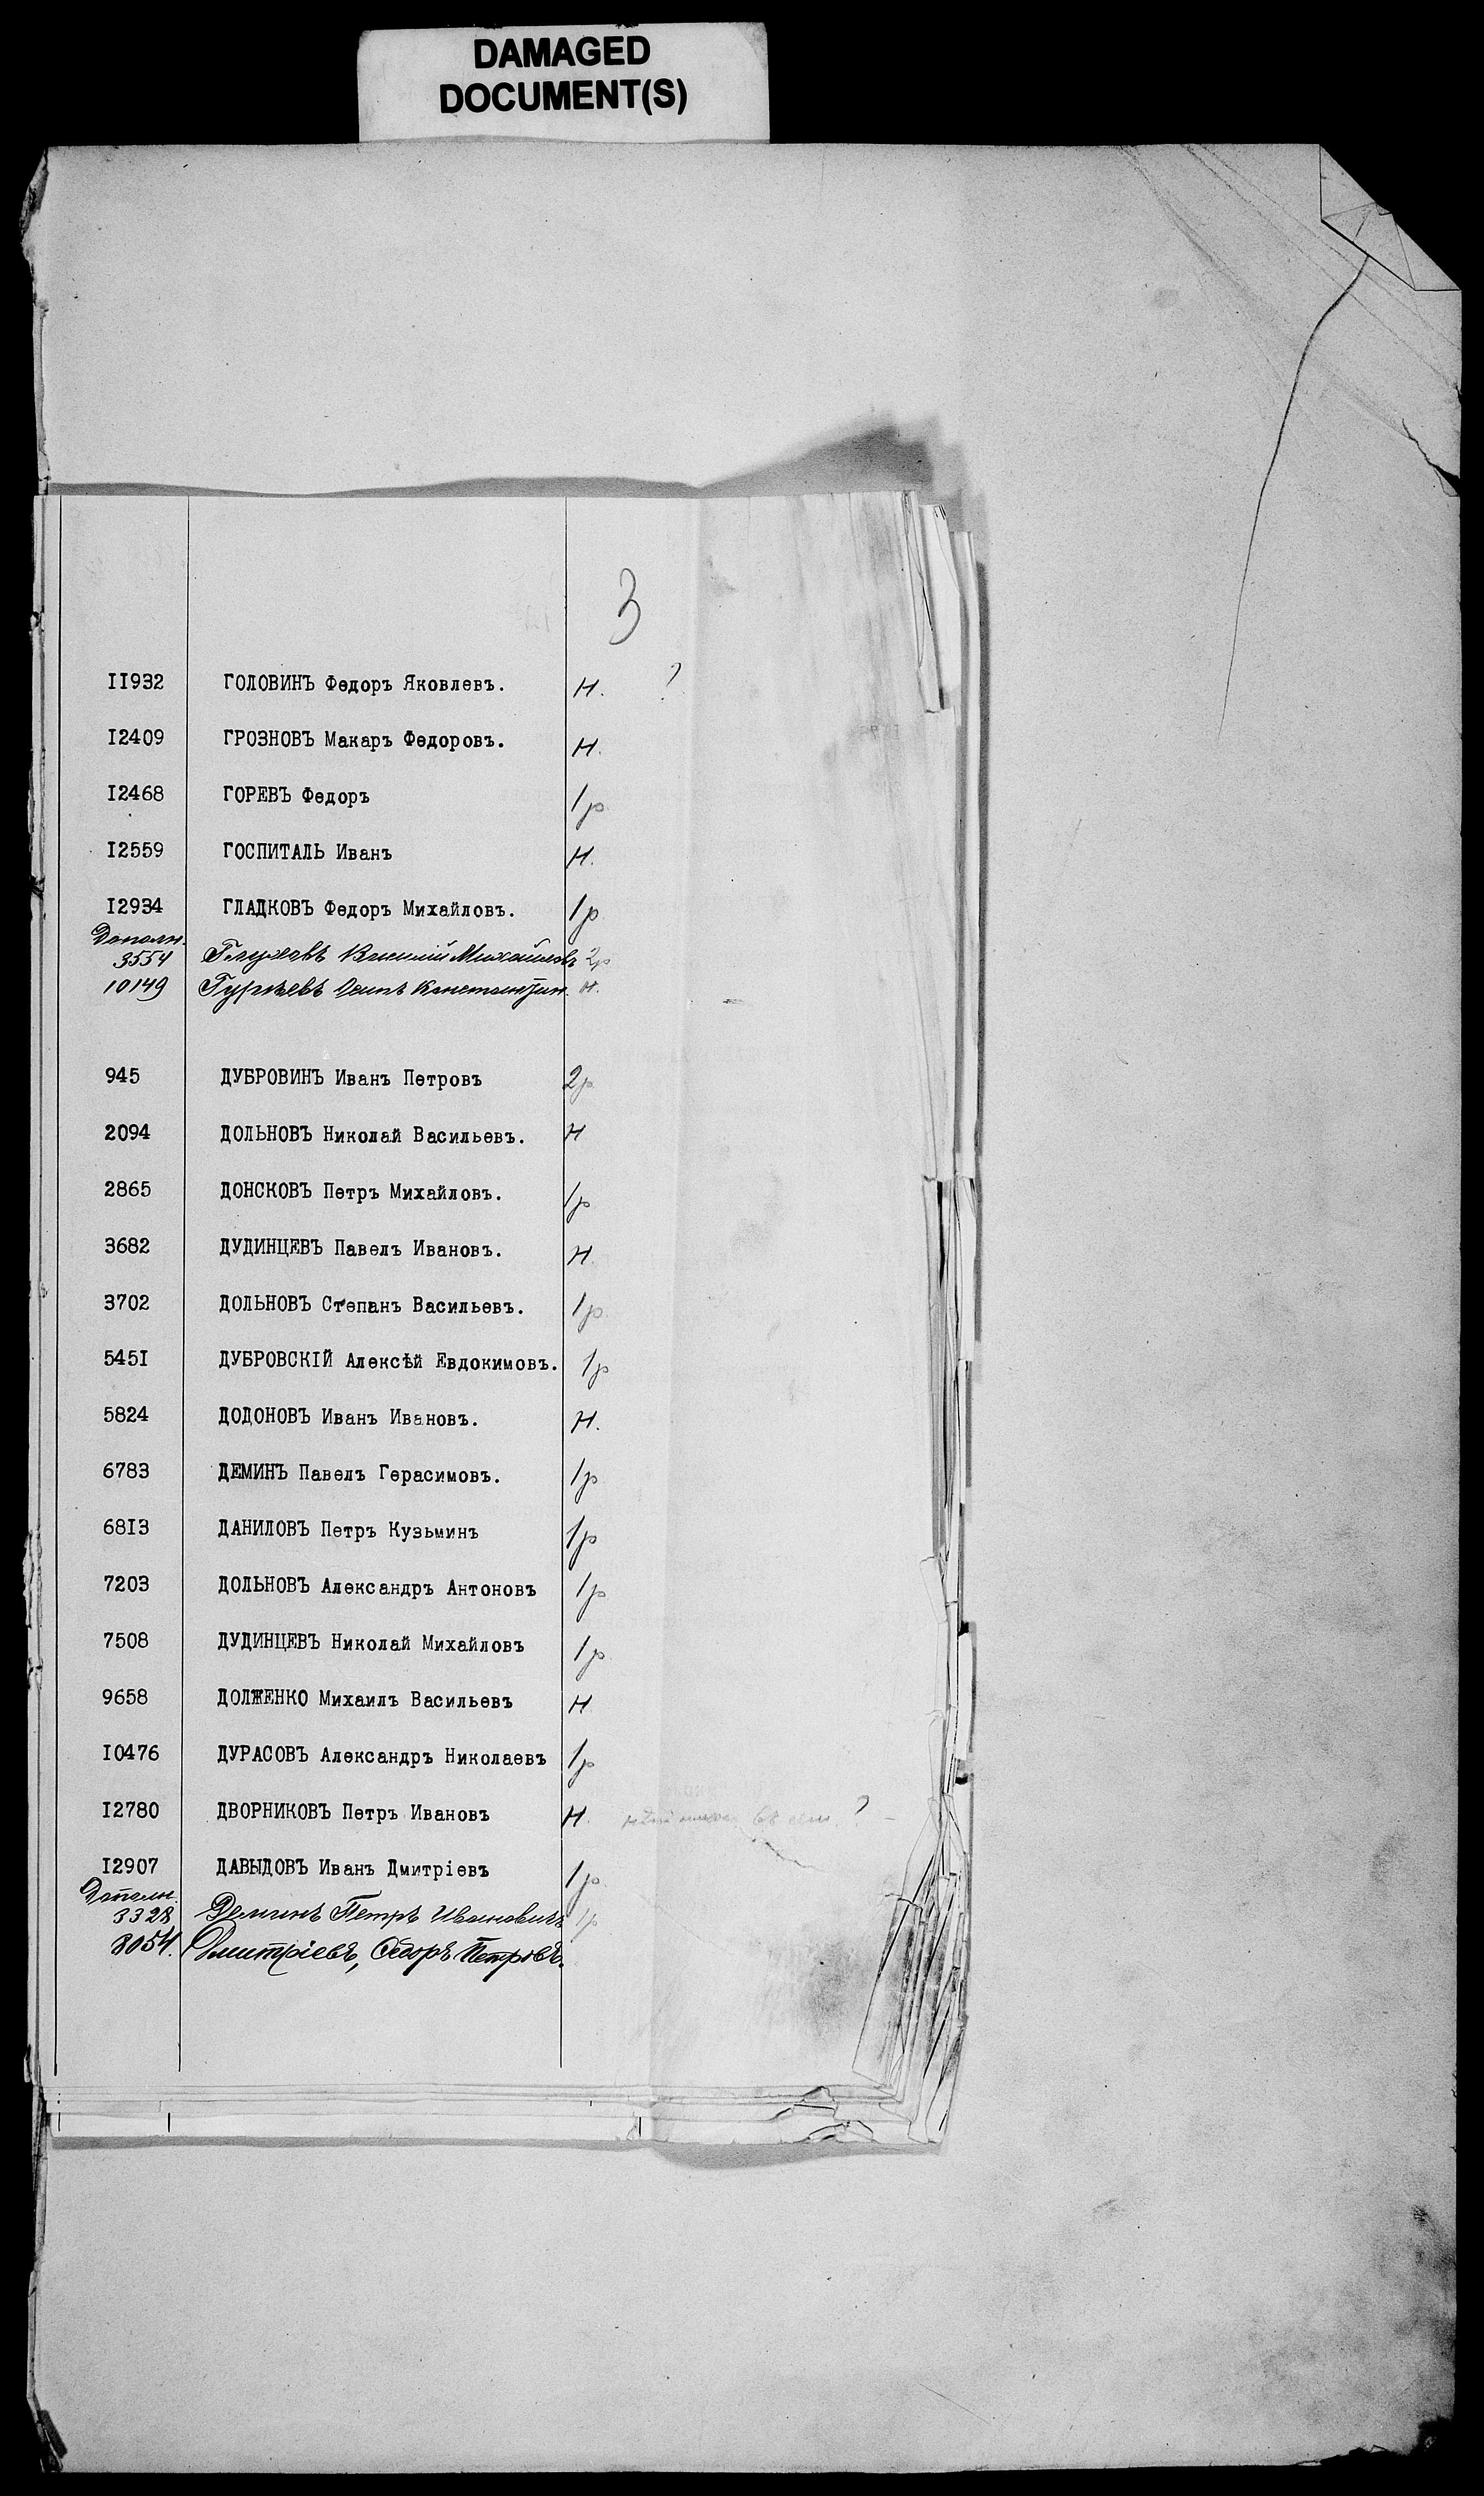 DAMAGED
DOCUMENT(S)
3
11932 ГОЛОВИНЪ Федоръ Яковлевъ. Н. ?
12409 ГРОЗНОВЪ Макаръ Федоровъ. Н.
12468 ГОРЕВЪ Федоръ 1р
12559 ГОСПИТАЛЬ Иванъ Н.
12934 ГЛАДКОВЪ Федоръ Михайловъ. 1р
Дополн.
3554 Глуховъ Василий Михайловъ 2р
10149 Гурьевъ Осипъ Константин. Н.
945 ДУБРОВИНЪ Иванъ Петровъ 2р
2094 ДОЛЬНОВЪ Николай Васильевъ. Н
2865 ДОНСКОВЪ Петръ Михайловъ. 1р
3682 ДУДИНЦЕВЪ Павелъ Ивановъ. Н.
3702 ДОЛЬНОВЪ Степанъ Васильевъ. 1р.
5451 ДУБРОВСКІЙ Алексѣй Евдокимовъ. 1р
5824 ДОДОНОВЪ Иванъ Ивановъ. Н.
6783 ДЕМИНЪ Павелъ Герасимовъ. 1р
6813 ДАНИЛОВЪ Петръ Кузьминъ 1р
7203 ДОЛЬНОВЪ Александръ Антоновъ 1р
7508 ДУДИНЦЕВЪ Николай Михайловъ 1р
9658 ДОЛЖЕНКО Михаилъ Васильевъ Н
10476 ДУРАСОВЪ Александръ Николаевъ 1р
12780 ДВОРНИКОВЪ Петръ Ивановъ Н. ?
12907 ДАВЫДОВЪ Иванъ Дмитріевъ 1р
Дополн.
3328 Деминъ Петръ Ивановичъ 1р
8054. Дмитріевъ, Ѳедоръ Петровъ.